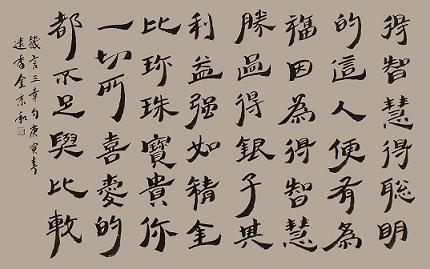 得智慧得聰明
的這人便有為
福因為得智慧
勝過得銀子其
利益强如精金
比珍珠寶貴你
一切所喜愛的
都不足與比較
箴言三章句庚寅春
金